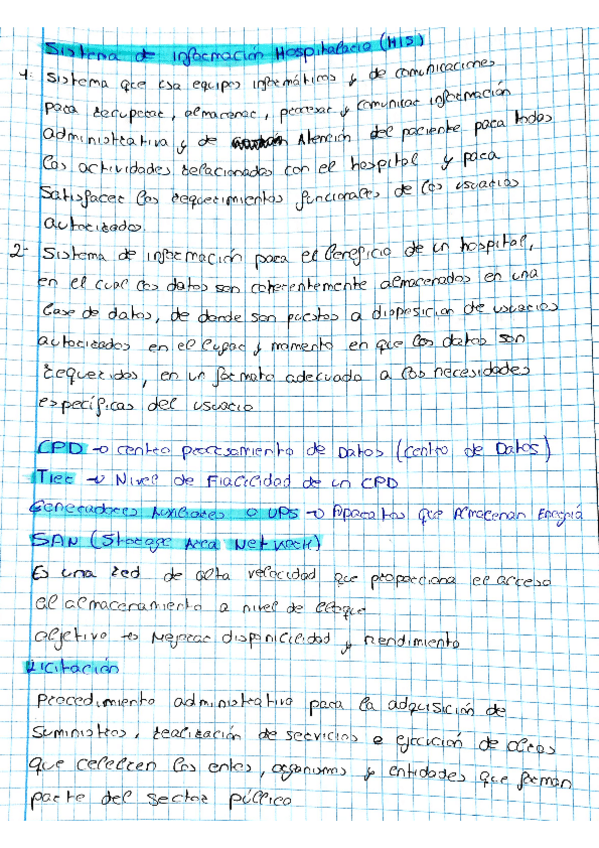 Sistema de información Hospitalario (HIS)
1- Sistema que usa equipos informáticos y de comunicaciones
para recuperar, almacenar, procesar y comunicar información
administrativa y de Atención del paciente para todas
las actividades relacionadas con el hospital y para
satisfacer los requerimientos funcionales de los usuarios
autorizados.
2- Sistema de información para el beneficio de un hospital,
en el cual los datos son coherentemente almacenados en una
base de datos, de donde son puestos a disposicion de usuarios
autorizados en el lugar y momento en que los datos son
requeridos, en un formato adecuado a las necesidades
específicas del usuario
CPD → centro procesamiento de Datos (centro de Datos)
Tier → Nivel de Fiabilidad de un CPD
Generadores Auxiliares o UPS → Aparatos que Almacenan Energía
SAN (Storage Area Network)
Es una red de alta velocidad que proporciona el acceso
al almacenamiento a nivel de bloque
objetivo → Mejorar disponibilidad y Rendimiento
Licitación
Procedimiento administrativo para la adquisición de
suministros, realización de servicios e ejecución de obras
que celebren los entes, organismos y entidades que forman
parte del sector público